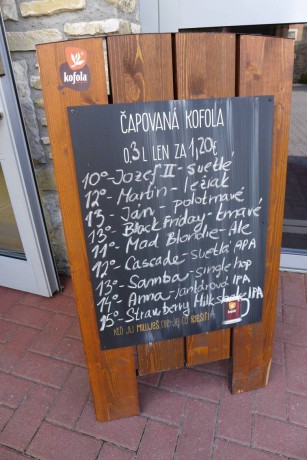 kofola
ČAPOVANÁ KOFOLA
0,3 L LEN ZA 1,20€
10° - Jozef II - svetlé
12° - Martin - ležiak
13 - Ján - polotmavé
13° - Black Friday - tmavé
11° - Mad Blondie - Ale
12° - Cascade - svetlá APA
13° - Samba - single hop
14° - Anna - jantárová IPA
15° - Strawberry Milkshake IPA
KEĎ JU MILUJEŠ, NIE JE ČO RIEŠIŤ
kofola